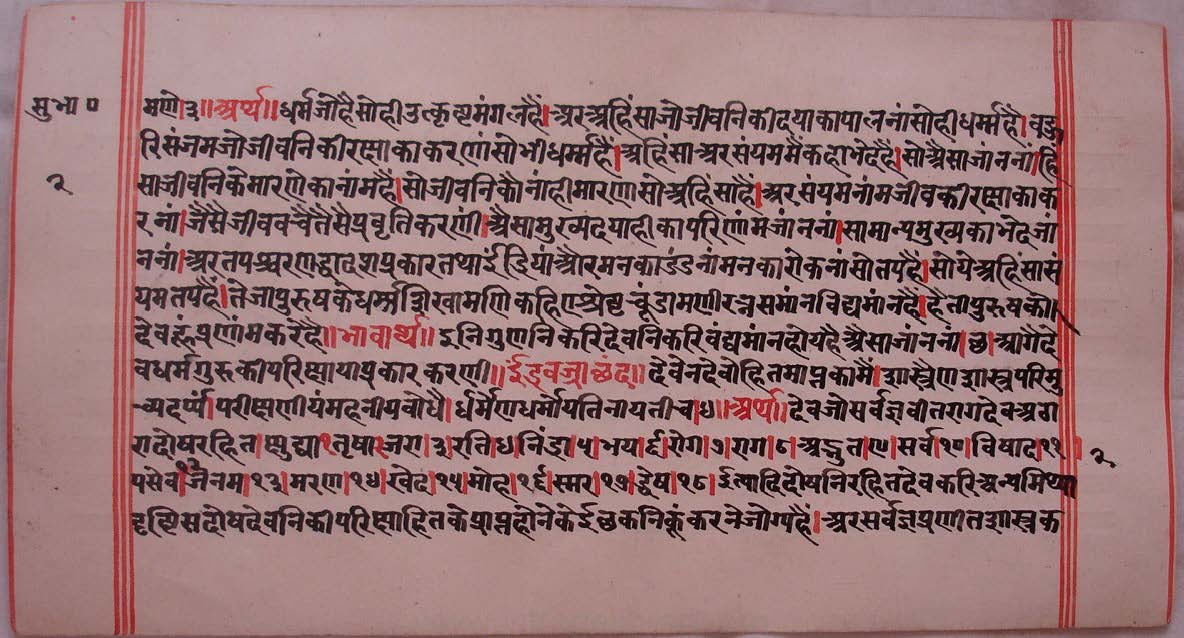 सुभा०
२
मणो३॥अर्थ॥धर्मजोहैसोहीउत्कृष्टमंगलहै।अरअहिंसाजोजीवनिकीदयाकापालनांसोहीधर्म्महै।बहु
रिसंजमजोजीवनिकीरक्षाकाकरणांसोभीधर्म्महैं।अहिंसाअरसंयममैकहाभेदहै।सोअैसाजांननां।हिं
साजीवनिकैमारणेकानांमहै।सोजीवनिकौनांहीमारणासोअहिंसाहै।अरसंयमनांमजीवकीरक्षाकाक
रनां।जैसैजीवबचैतैसैप्रवृतिकरणी।अैसामुख्यदयाहीकापरिणांमजांननां।सामान्यमुख्यकाभेदजां
ननां।अरतपश्चरणद्वादशप्रकारतथाइंद्रियांऔरमनकादंडनांमनकारोकनांसोतपहै।सोयेअहिंसासं
यमतपहै।तेजापुरुषकेधर्मशिखामणिकहिएश्रेष्टचूंडामणीरत्नसमांनविद्यमांनहै।हैतापुरुषकौ।
देवहूंप्रणांमकरेहै॥भावार्थ॥इनिगुणनिकरिदेवनिकरिवंद्यमांनहोयहैअैसाजांनना।छ।आगैदे
वधर्मगुरुकीपरिक्षायाप्रकारकरणी॥इंद्रवज्राछंद॥देवेनदेवोहितमाप्नकामैं।शास्त्रेणशास्त्रपरिमु
च्यदर्प्पा।परीक्षणीयंमहनीयबोधै।र्धर्मेणधर्मोयतिनायतीच।४॥अर्थ॥देवजोसर्वज्ञवीतरागदेवअरा
रादोषरहित।क्षुद्या१तृषा२जरा३रति४निंद्रा५भय६रोग७राग८अद्भुत९सर्व१०विषाद११
२
पसेव१२जनम१३मरण१४खेद१५मोह१६स्मर१७द्वेष१८इत्यादिदोषनिरहितदेवकरिअन्यमिथ्या
दृष्टिसदोषदेवनिकीपरिक्षाहितकेप्राप्नहोनेकेईछकनिकूंकरनेजोग्यहै।अरसर्वज्ञप्रणीतशास्त्रक